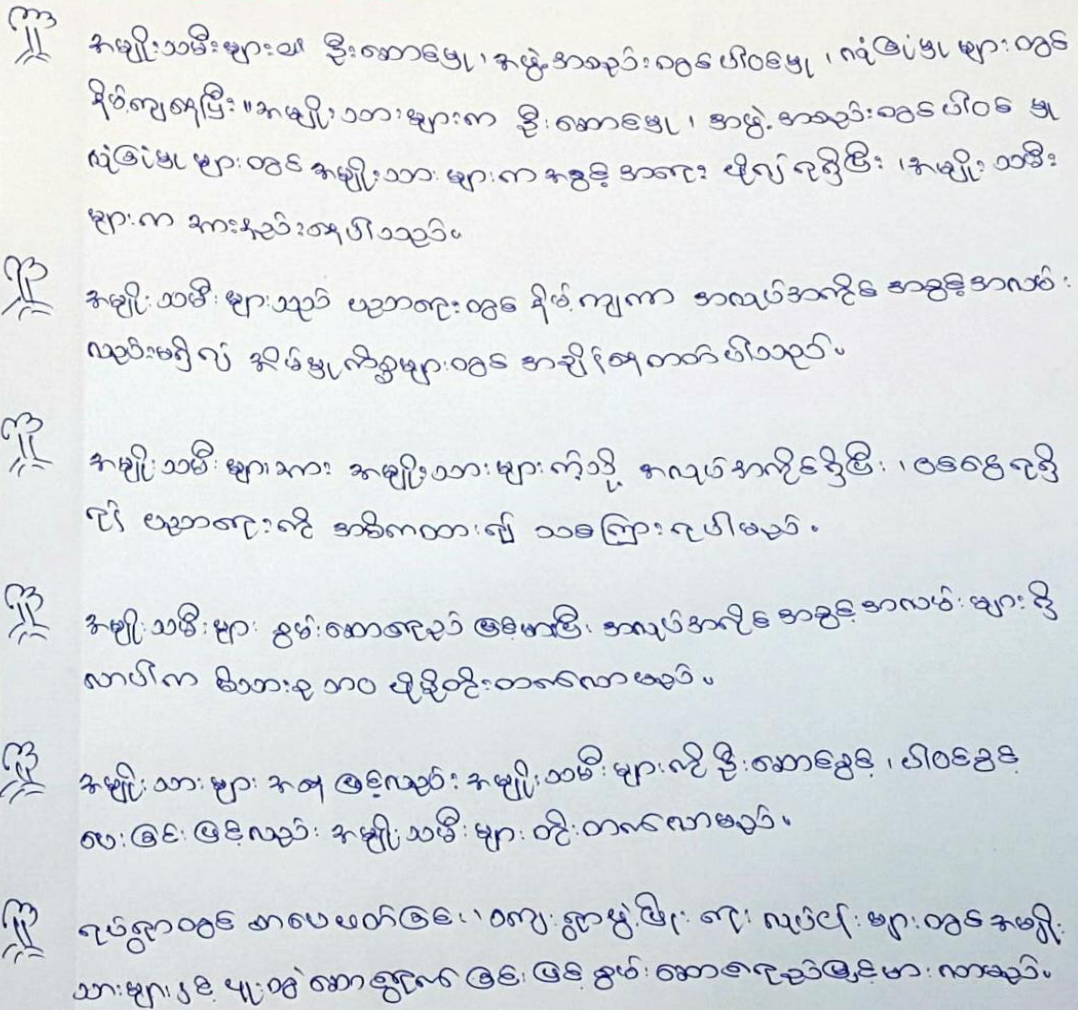 အမျိုးသမီးများမှာ ဦးဆောင်မှု၊ အဖွဲ့အစည်းတွင်ပါဝင်မှု၊ လုံခြုံမှုများတွင်
နိမ့်ကျနေပြီး။ အမျိုးသားများက ဦးဆောင်မှု၊ အဖွဲ့အစည်းတွင်ပါဝင်မှု
လုံခြုံမှုများတွင် အမျိုးသားများက အခွင့်အရေး ပိုလို့ရရှိပြီး၊ အမျိုးသမီး
များက အားနည်းနေပါသည်။
အမျိုးသမီးများသည် ပညာရေးတွင် နိမ့်ကျကာ အလုပ်အကိုင် အခွင့်အလမ်း
လည်းမရှိလို့ အိမ်မှုကိစ္စများတွင် အချိန်နေတတ်ပါသည်။
အမျိုးသမီးများအား အမျိုးသားများကဲ့သို့ အလုပ်အကိုင်ရှိပြီး၊ ဝင်ငွေရရှိ
ဖို့ ပညာရေးကို အဓိကထား၍ သင်ကြားရပါမည်။
အမျိုးသမီးများ စွမ်းဆောင်ရည် မြင့်မားပြီး အလုပ်အကိုင် အခွင့်အလမ်းများရှိ
လာပါက မိသားစု ဘဝ ပိုမိုတိုးတက်လာမည်။
အမျိုးသားများ အနေဖြင့်လည်း အမျိုးသမီးများကို ဦးဆောင်ခွင့်၊ ပါဝင်ခွင့်
ပေးခြင်းဖြင့်လည်း အမျိုးသမီးများ တိုးတက်လာမည်။
ရပ်ရွာတွင် စာပေဖတ်ခြင်း၊ ကျေးရွာဖွံ့ဖြိုးရေး လုပ်ငန်းများတွင် အမျိုး
သားများနှင့် ပူးတွဲ ဆောင်ရွက်ခြင်းဖြင့် စွမ်းဆောင်ရည်မြှင့်မားလာမည်။